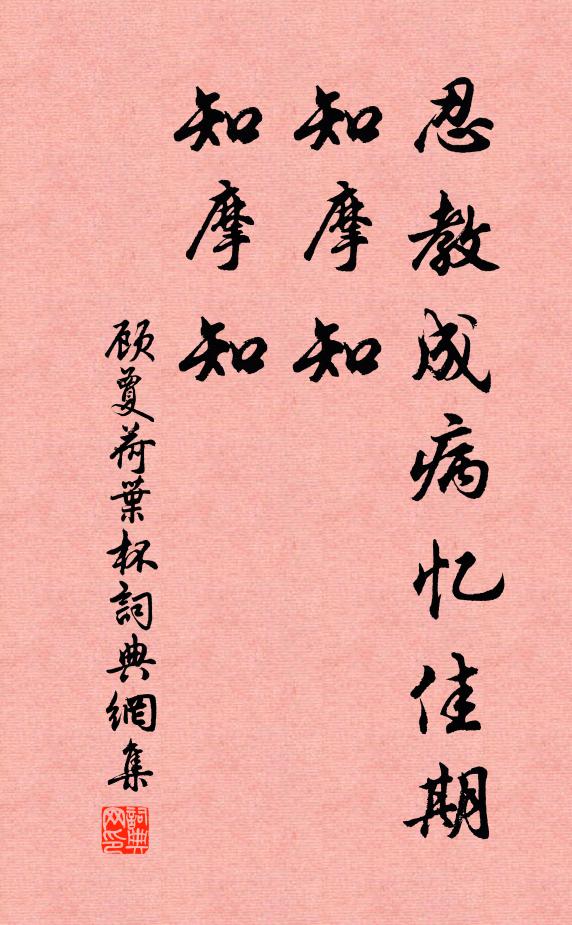 忍教成病忆佳期
知摩知
知摩知
顾夐荷葉杯詞典網集
詞典
网印